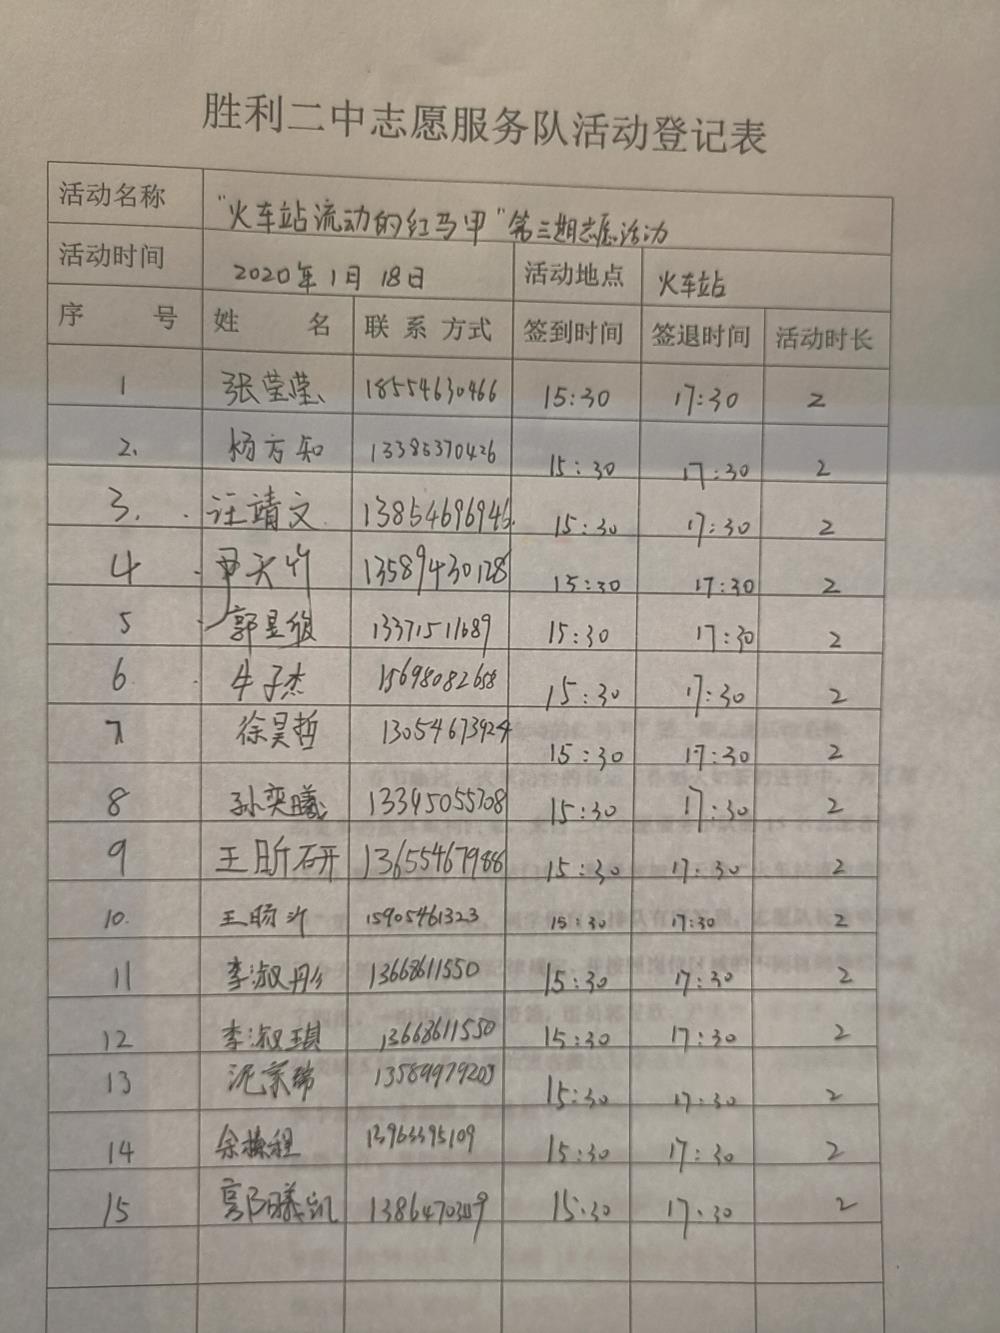 胜利二中志愿服务队活动登记表
活动名称 "火车站流动的红马甲"第三期志愿活动
活动时间 2020年1月18日 活动地点 火车站
序号 姓名 联系方式 签到时间 签退时间 活动时长
1 张莹莹 18554630466 15:30 17:30 2
2. 杨方知 13385370426 15:30 17:30 2
3. 汪靖文 13854696946 15:30 17:30 2
4 尹天竹 13589430128 15:30 17:30 2
5 郭昱维 13371511689 15:30 17:30 2
6 牛子杰 15698082658 15:30 17:30 2
7 徐昊哲 13054673924 15:30 17:30 2
8 孙奕曦 13345055708 15:30 17:30 2
9 王昕研 13655467988 15:30 17:30 2
10. 王旸 15905461323 15:30 17:30 2
11 李淑彤 13668611550 15:30 17:30 2
12 李淑琪 13668611550 15:30 17:30 2
13 13589979205 15:30 17:30 2
14 余 程 13963395109 15:30 17:30 2
15 曦凯 15:30 17:30 2